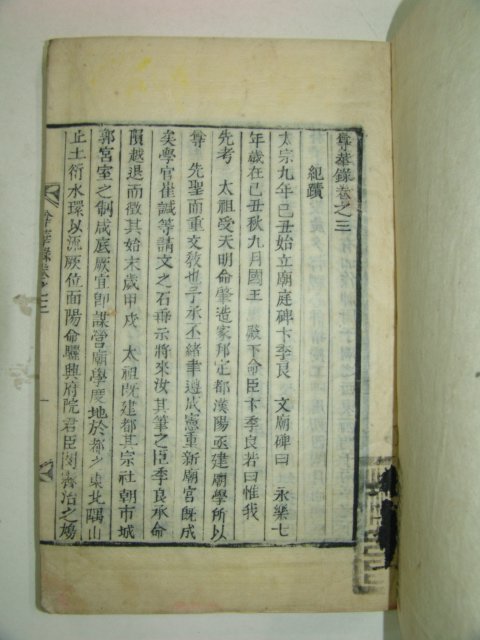 尊華錄卷之三
紀蹟
太宗九年己丑始立廟庭碑卞季良 文廟碑曰 永樂七
年歲在己丑秋九月國王 殿下命臣卞季良若曰惟我
先考 太祖受天明命肇造家邦定都漢陽亟建廟學所以
尊 先聖而重文敎也予承丕緖聿遵成憲重新廟宮旣成
矣學官崔諴等請文之石垂示將來汝其筆之臣季良承命
隕越退而徵其始末歲甲戌 太祖旣建都其宗社朝市城
郭宮室之制咸底厥宜卽謀營廟學度地於都之東北隅山
止土衍水環以流厥位面陽命驪興府院君臣閔霽治之鳩
尊華錄卷之三 一